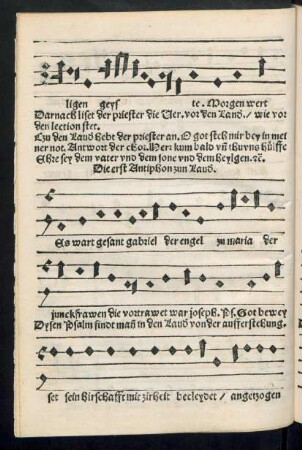 ligen geys te. Morgen wert
Darnach liset der priester die Ver. vor den Laud. / wie vor
den lection stet.
Czu den Laud hebt der priester an. O got steh mir bey in mei
ner not. Antwor der chor. Herr kum bald vñ thu vns hülffe
Ehre sey dem vater vnd dem sone vnd dem heylgen. ꝛc.
Die erst Antiphon zun Laud.
Es wart gesant gabriel der engel zu maria der
junckfrawen die vortrawet war joseph. Ps. Got bewey
Dysen Psalm findt mañ in den Laud von der aufferstehung.
set sein hirschafft mit zirheit becleydet / angetzogen